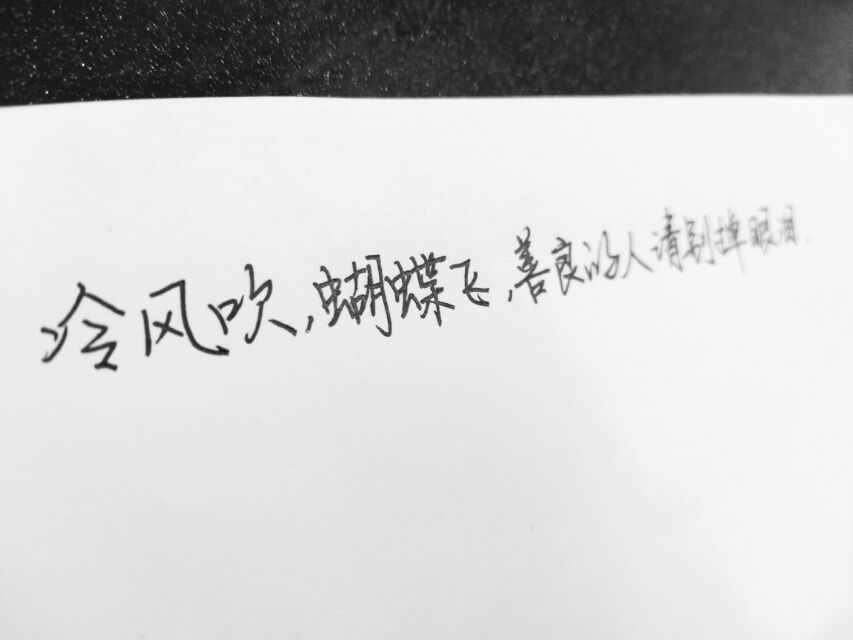 冷风吹,蝴蝶飞,善良的人请别掉眼泪.